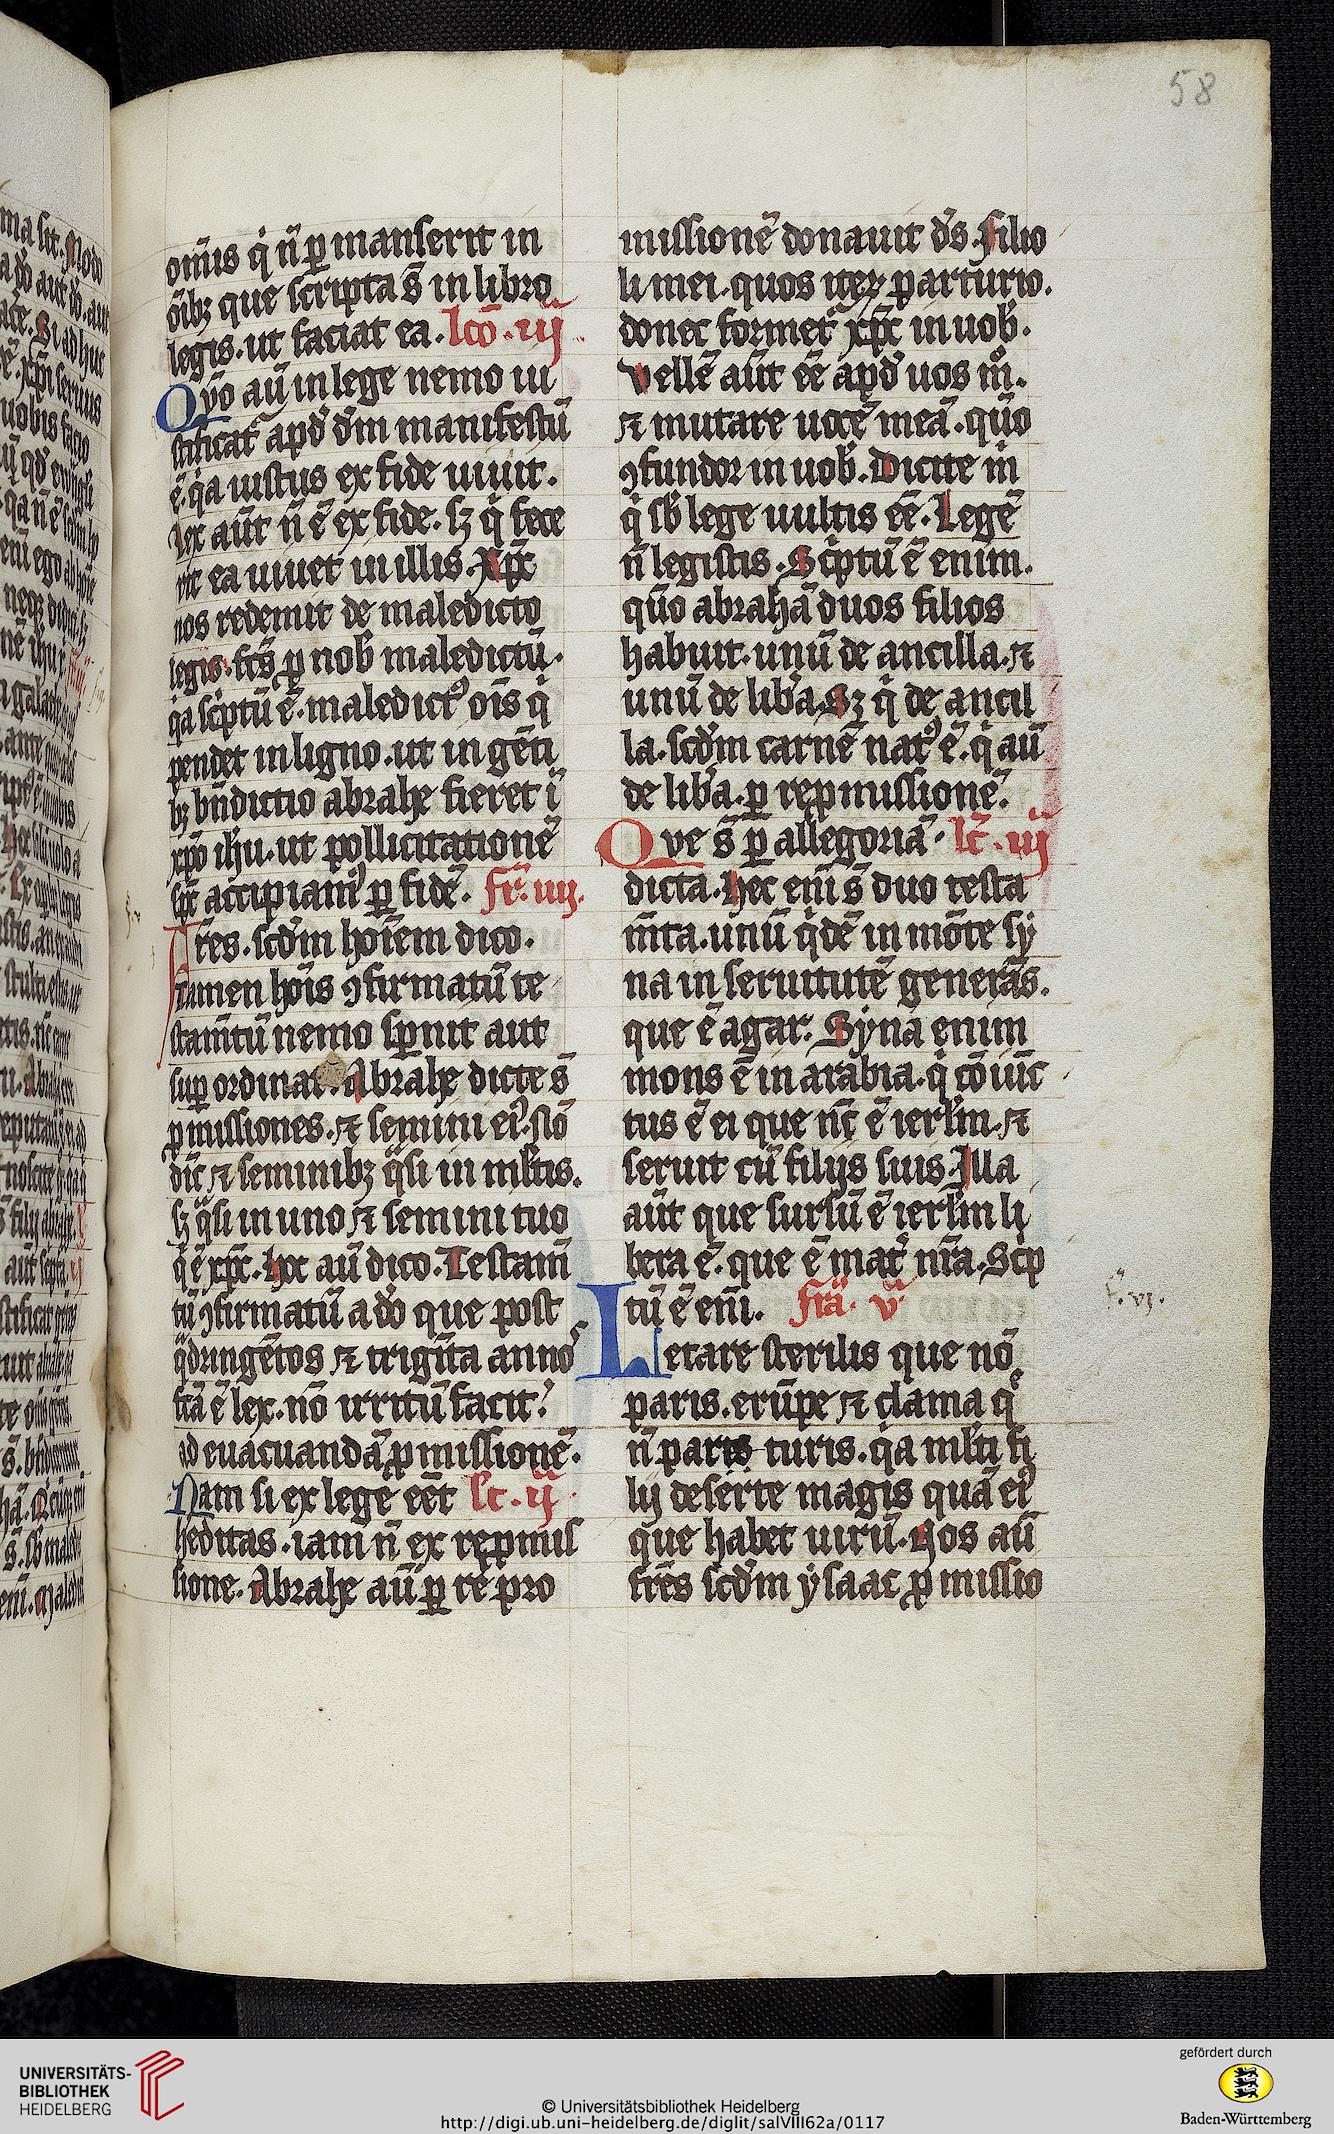 58
om̄is q̇ n̄ ꝑmanserit in
ōibꝫ que scripta s̄ in libro
legis. ut faciat ea. lc̄o. iij
Qvō aū in lege nemo iu
stificat᷑ apd̄ dm̄ manifestū
ē. q̇a iustus ex fide uiuit.
Lex aūt n̄ ē ex fide. sꝫ q̇ fece
rit ea uiuet in illis. Xp̄c
nos redemit de maledicto
legis. fc̄s ꝓ nob̄ maledictū.
q̇a sċptū ē. maledictꝰ om̄s q̇
pendet in ligno. ut in gēti
bꝫ bn̄dictio abrahe fieret ī
xp̄o ih̄u. ut pollicitationē
sp̄c accipiamꝰ ꝑ fidē. fr̄. iiij.
Fres. scd̄m hoīem dico.
tamen hōis ꝯfirmatū te
stam̄tū nemo sp̄nit aut
suꝑordinat. Abrahe dicte s̄
ꝓmissiones. ⁊ semini eiꝰ. nō
dic̄ ⁊ seminibꝫ q̈si in ml̄tis.
sꝫ q̈si in uno ⁊ semini tuo
q̇ ē xp̄c. hoc aū dico. Testam̄
tū ꝯfirmatū a dō que post
q̈dringētos ⁊ triginta annos
fc̄a ē lex. nō irritū facit
ad euacuandā ꝓmissionē.
Nam si ex lege eēt lc̄. ij.
heditas. iam n̄ ex repmis
sione. Abrahe aū ꝑ repro
missionē donauit d̄s. Filio
li mei. quos iteꝝ parturio.
donec formet᷑ xp̄c in uob̄.
Vellē aūt eē apd̄ uos m̊.
⁊ mutare uocē meā. qūo
ꝯfundor in uob̄. Dicite m̄
q̇ sb̄ lege uultis eē. Legē
n̄ legistis. Sċptū ē enim.
qūo abrahā duos filios
habuit. unū de ancilla. ⁊
unū de lib̄a. Sꝫ q̇ de ancil
la. scd̄m carnē natꝰ ē. q̇ aū
de lib̄a. ꝑ repmissionē.
Qve s̄ ꝑ allegoriā. lc̄. iij
dicta. Hec eni s̄ duo testa
m̄ta. unū q̇dē in mōte sy
na in seruitutē generās.
que ē agar. Syna enim
mons ē in arabia. q̇ cōiūc
tus ē ei que nc̄ ē ierlm̄. ⁊
seruit cū filijs suis. Illa
aūt que sursū ē ierlm̄ li
bera ē. que ē mat᷑ nr̄a. Scp̄
tū ē eni. fr̄a. v
Letare sterilis que nō
paris. erūpe ⁊ clama q̄
n̄ paris turis. q̇a ml̄ti fi
lij deserte magis quā eiꝰ
que habet uirū. Nos aū
frēs scd̄m ysaac ꝓmissio
f. vi.
UNIVERSITÄTS-
BIBLIOTHEK
HEIDELBERG
© Universitätsbibliothek Heidelberg
http://digi.ub.uni-heidelberg.de/diglit/salVIII62a/0117
gefördert durch
Baden-Württemberg